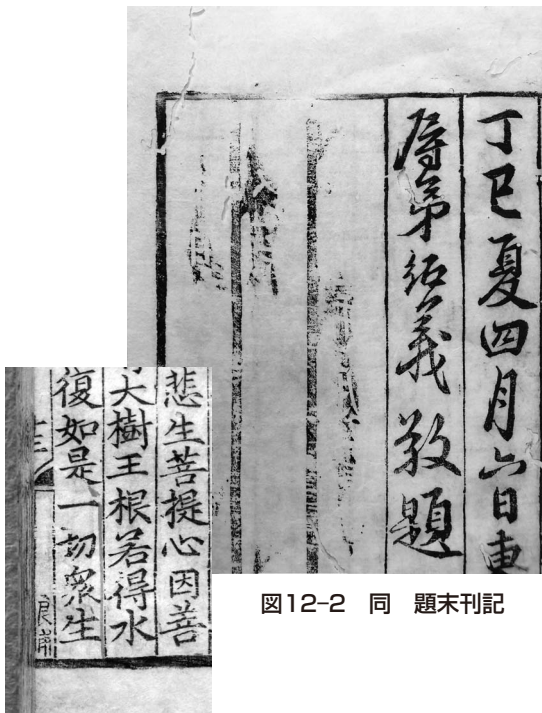 丁巳夏四月六日東
辱弟紹義敬題
悲生菩提心因善
大樹王根若得水
復如是一切衆生
図12-2 同 題末刊記